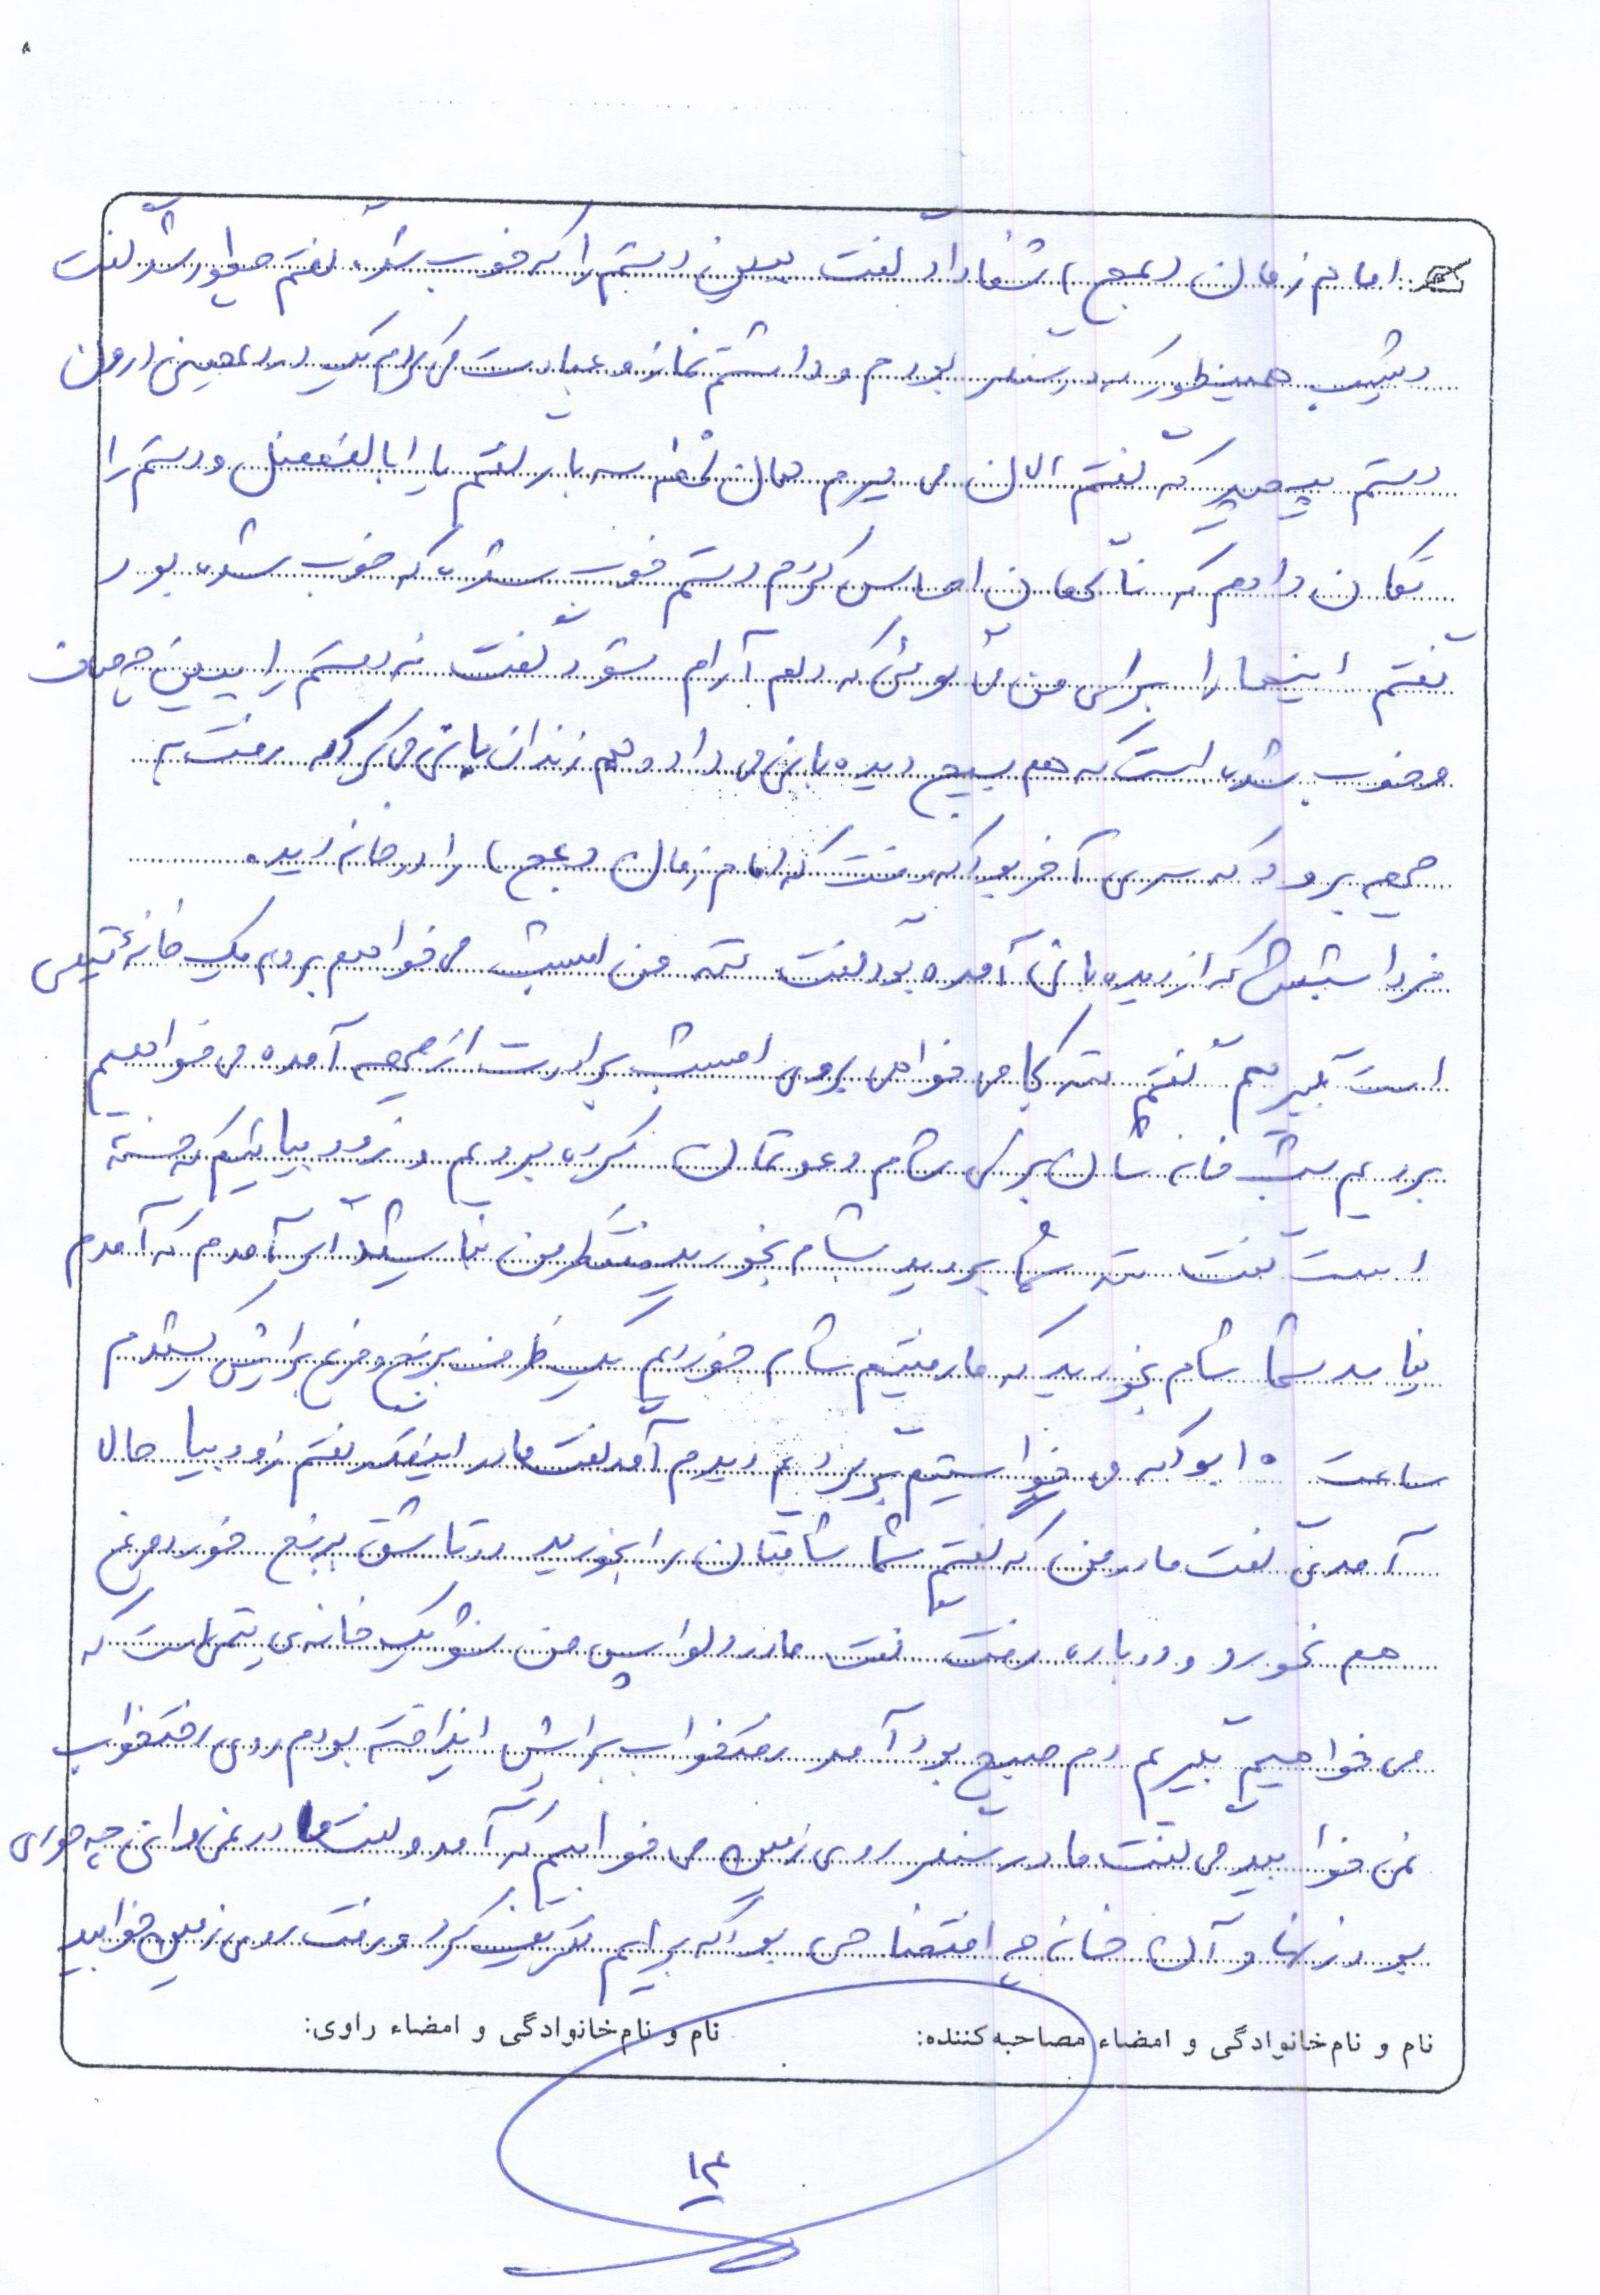 امام زمان (عج) شفا داد گفت ببین دستم را که خوب شده گفتم چطور شد گفت
دیشب همینطور که در سنگر بودم و داشتم نماز و عبادت می کردم یک درد عجیبی در من
دستم پیچید که گفتم الان می میرم همان لحظه سه بار گفتم یا اباالفضل و دستم را
تکان دادم که ناگهان احساس کردم دستم خوب شده که خوب شده بود
گفتم اینها را برای من می گوئی که دلم آرام شود گفت نه دستم را ببین چه صاف
و خوب شده است که هم بسیج دیده بانی می داد و هم زندان بانی می کرد که رفت به
جبهه برود که سری آخر بود که رفت که امام زمان (عج) را در خانه دیده
فردا شبش که از دیده بانی آمده بود گفت ننه من امشب می خواهم بروم یک خانه تیمی
است بگیرم گفتم ننه کجا می خواهی بروی امشب برادرت از جبهه آمده می خواهیم
برویم شب خانه شان برای شام دعوتمان کرده برویم و زود بیائیم که خسته
است گفت ننه شما بروید شام بخورید منتظر من نباشید اگر آمدم که آمدم
نیامدم شما شام بخورید که ما رفتیم شام خوردیم یک ظرف برنج و مرغ برایش کشیدم
ساعت ۱۰ بود که می خواستیم برگردیم دیدم آمد گفت مادر اینقدر گفتم زود بیا حالا
آمدی گفت مادر من که گفتم شما شامتان را بخورید دو تا قاشق برنج خورد مرغ
هم نخورد و دوباره رفت گفت مادر دلواپس من نشو یک خانه ی تیمی است که
می خواهیم بگیریم دم صبح بود آمد رختخواب برایش انداخته بودم روی رختخواب
نمی خوابید می گفت ما در سنگر روی زمین می خوابیم که آمد و گفت مادر نمی دانی چه جوری
بود زنها و آن خانه چه افتضاحی بود که برایم تعریف کرد و رفت روی زمین خوابید
نام و نام خانوادگی و امضاء مصاحبه کننده: نام و نام خانوادگی و امضاء راوی:
۱۴